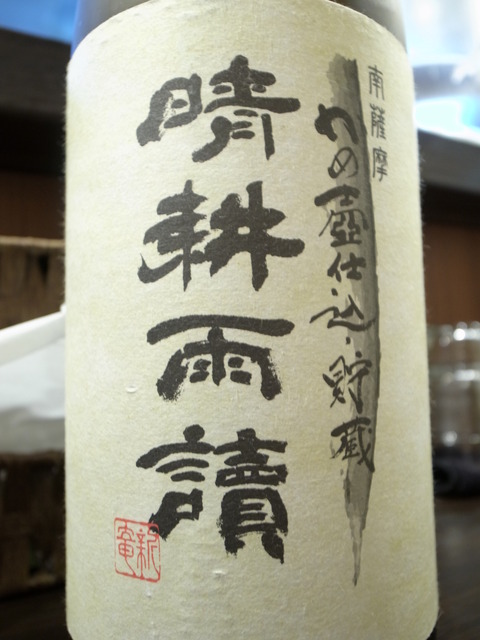 南薩摩
かめ壺仕込・貯蔵
晴耕雨讀